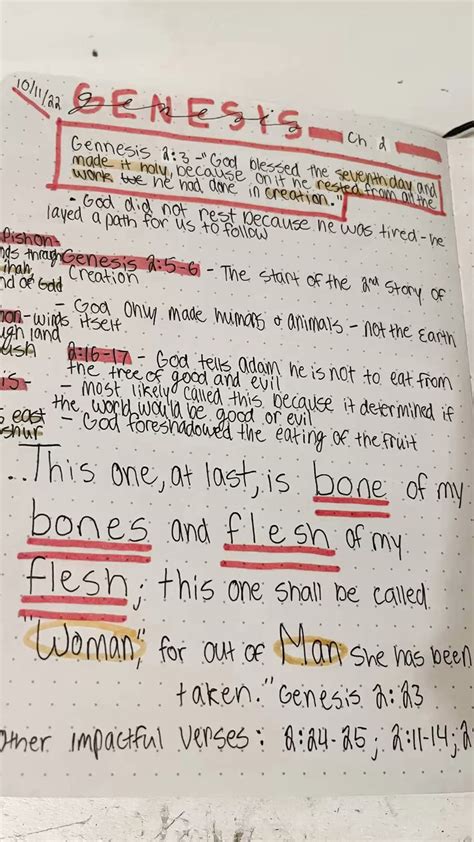 10/11/22
GENESIS
genesis
Ch 2
Gennesis 2:3 - "God blessed the seventh day and
made it holy, because on it he rested from all the
work he had done in creation."
• God did not rest because he was tired - he
layed a path for us to follow
Pishon
Genesis 2:5-6 - The start of the 2nd story of
creation
- God only made humans & animals - not the Earth
itself
2:16-17 - God tells adam he is not to eat from
the tree of good and evil
- most likely called this because it determined if
the world would be good or evil
- God foreshadowed the eating of the fruit
nds through
ihah,
nd of Gold
hon - winds
ugh land
ush
is -
s east
shur
..This one, at last, is bone of my
bones and flesh of my
flesh; this one shall be called
"Woman," for out of Man she has been
taken." Genesis 2:23
other impactful verses: 2:24-25; 2:11-14; 2